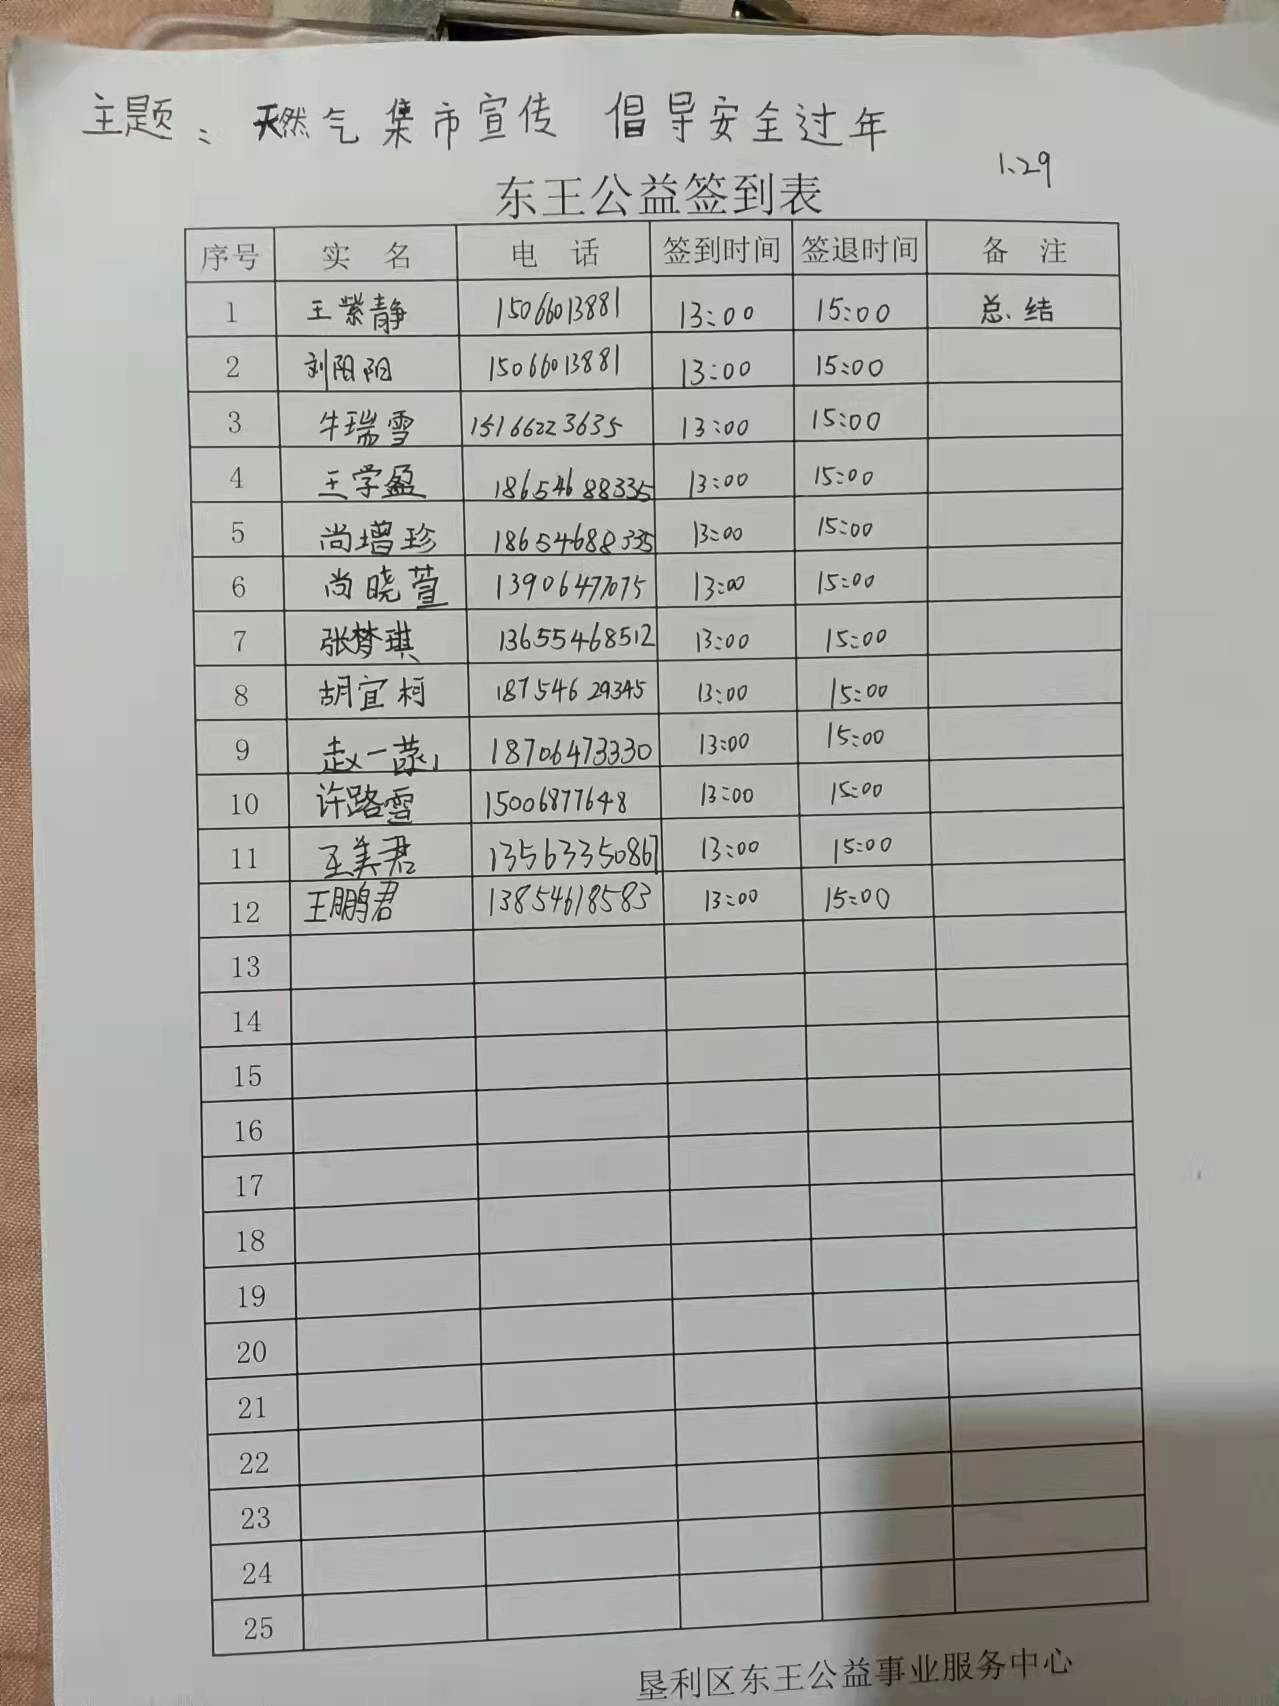 主题: 天然气集市宣传 倡导安全过年
1.29
东王公益签到表
序号 实 名 电 话 签到时间 签退时间 备 注
1 王紫静 15066013881 13:00 15:00 总结
2 刘阳阳 15066013881 13:00 15:00
3 牛瑞雪 15166223635 13:00 15:00
4 王学盈 18654688335 13:00 15:00
5 尚增珍 18654688335 13:00 15:00
6 尚晓萱 13906477075 13:00 15:00
7 张梦琪 13655468512 13:00 15:00
8 胡宜柯 18754629345 13:00 15:00
9 赵一 18706473330 13:00 15:00
10 许路雪 15006877648 13:00 15:00
11 王美君 13563350867 13:00 15:00
12 王鹏君 13854618583 13:00 15:00
13
14
15
16
17
18
19
20
21
22
23
24
25
垦利区东王公益事业服务中心